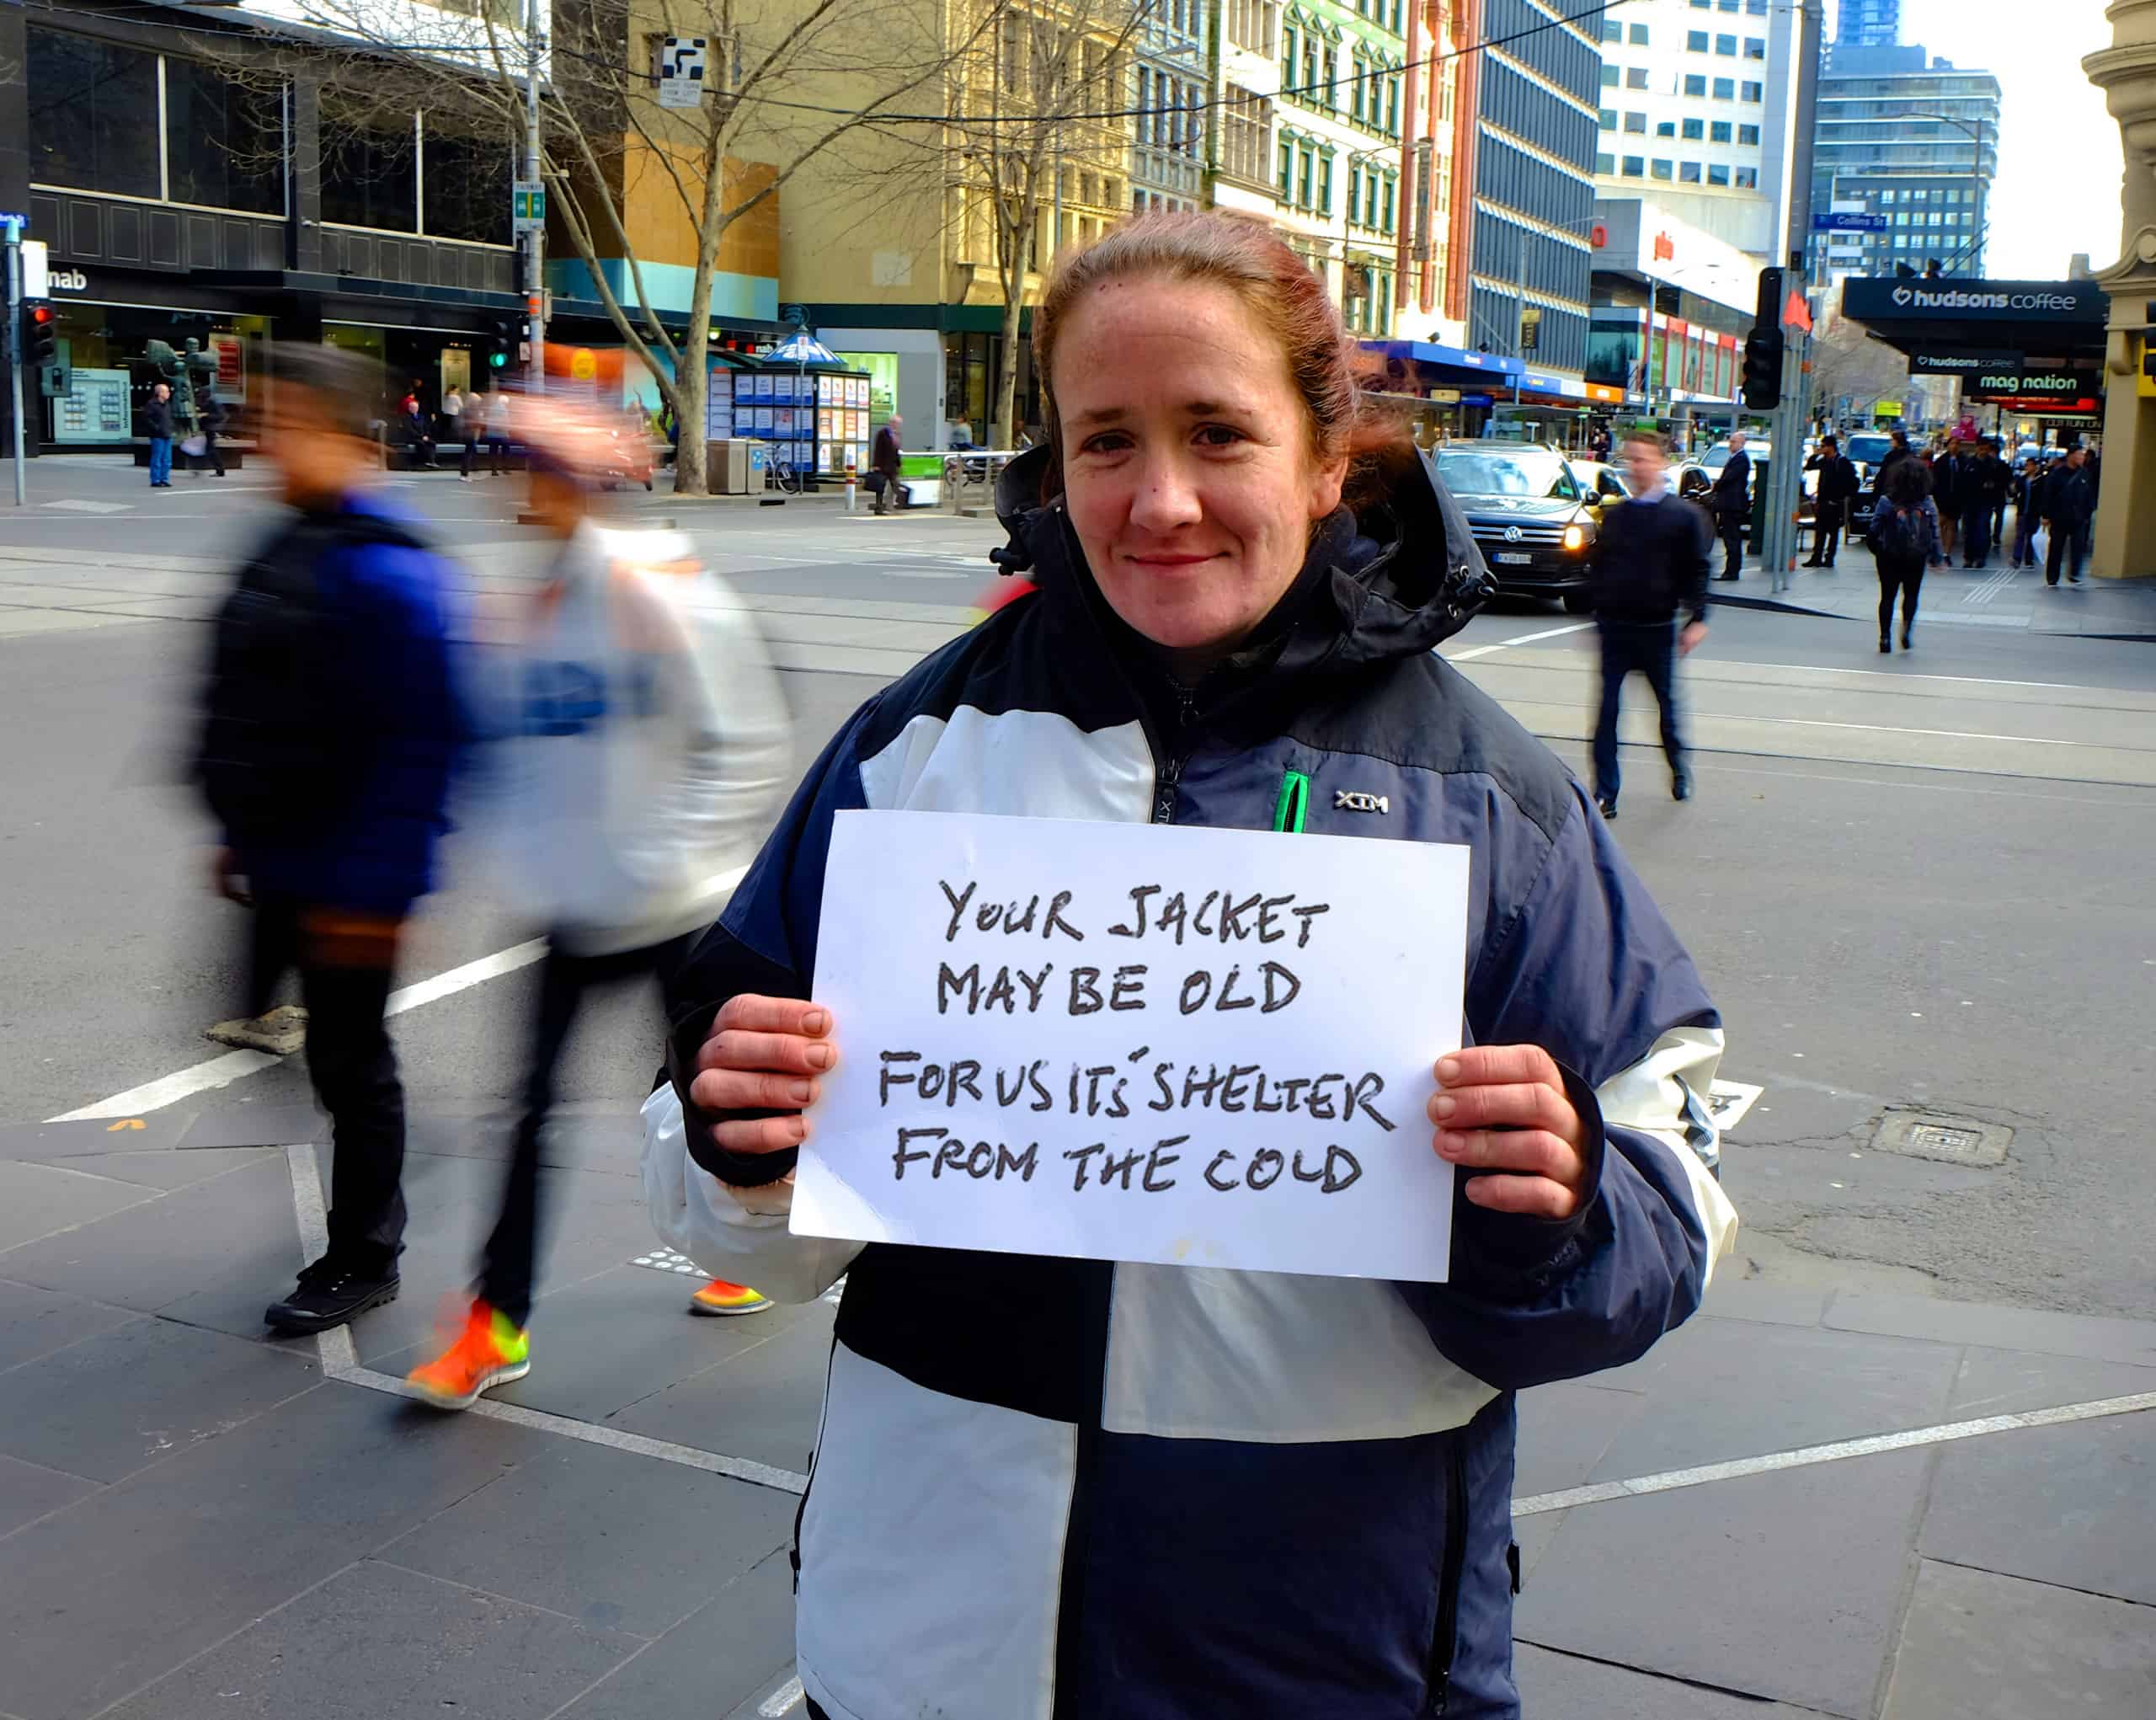 nab
nab
Collins St
hudsons coffee
hudsons coffee
mag nation
XTM
YOUR JACKET
MAY BE OLD
FOR US IT'S SHELTER
FROM THE COLD